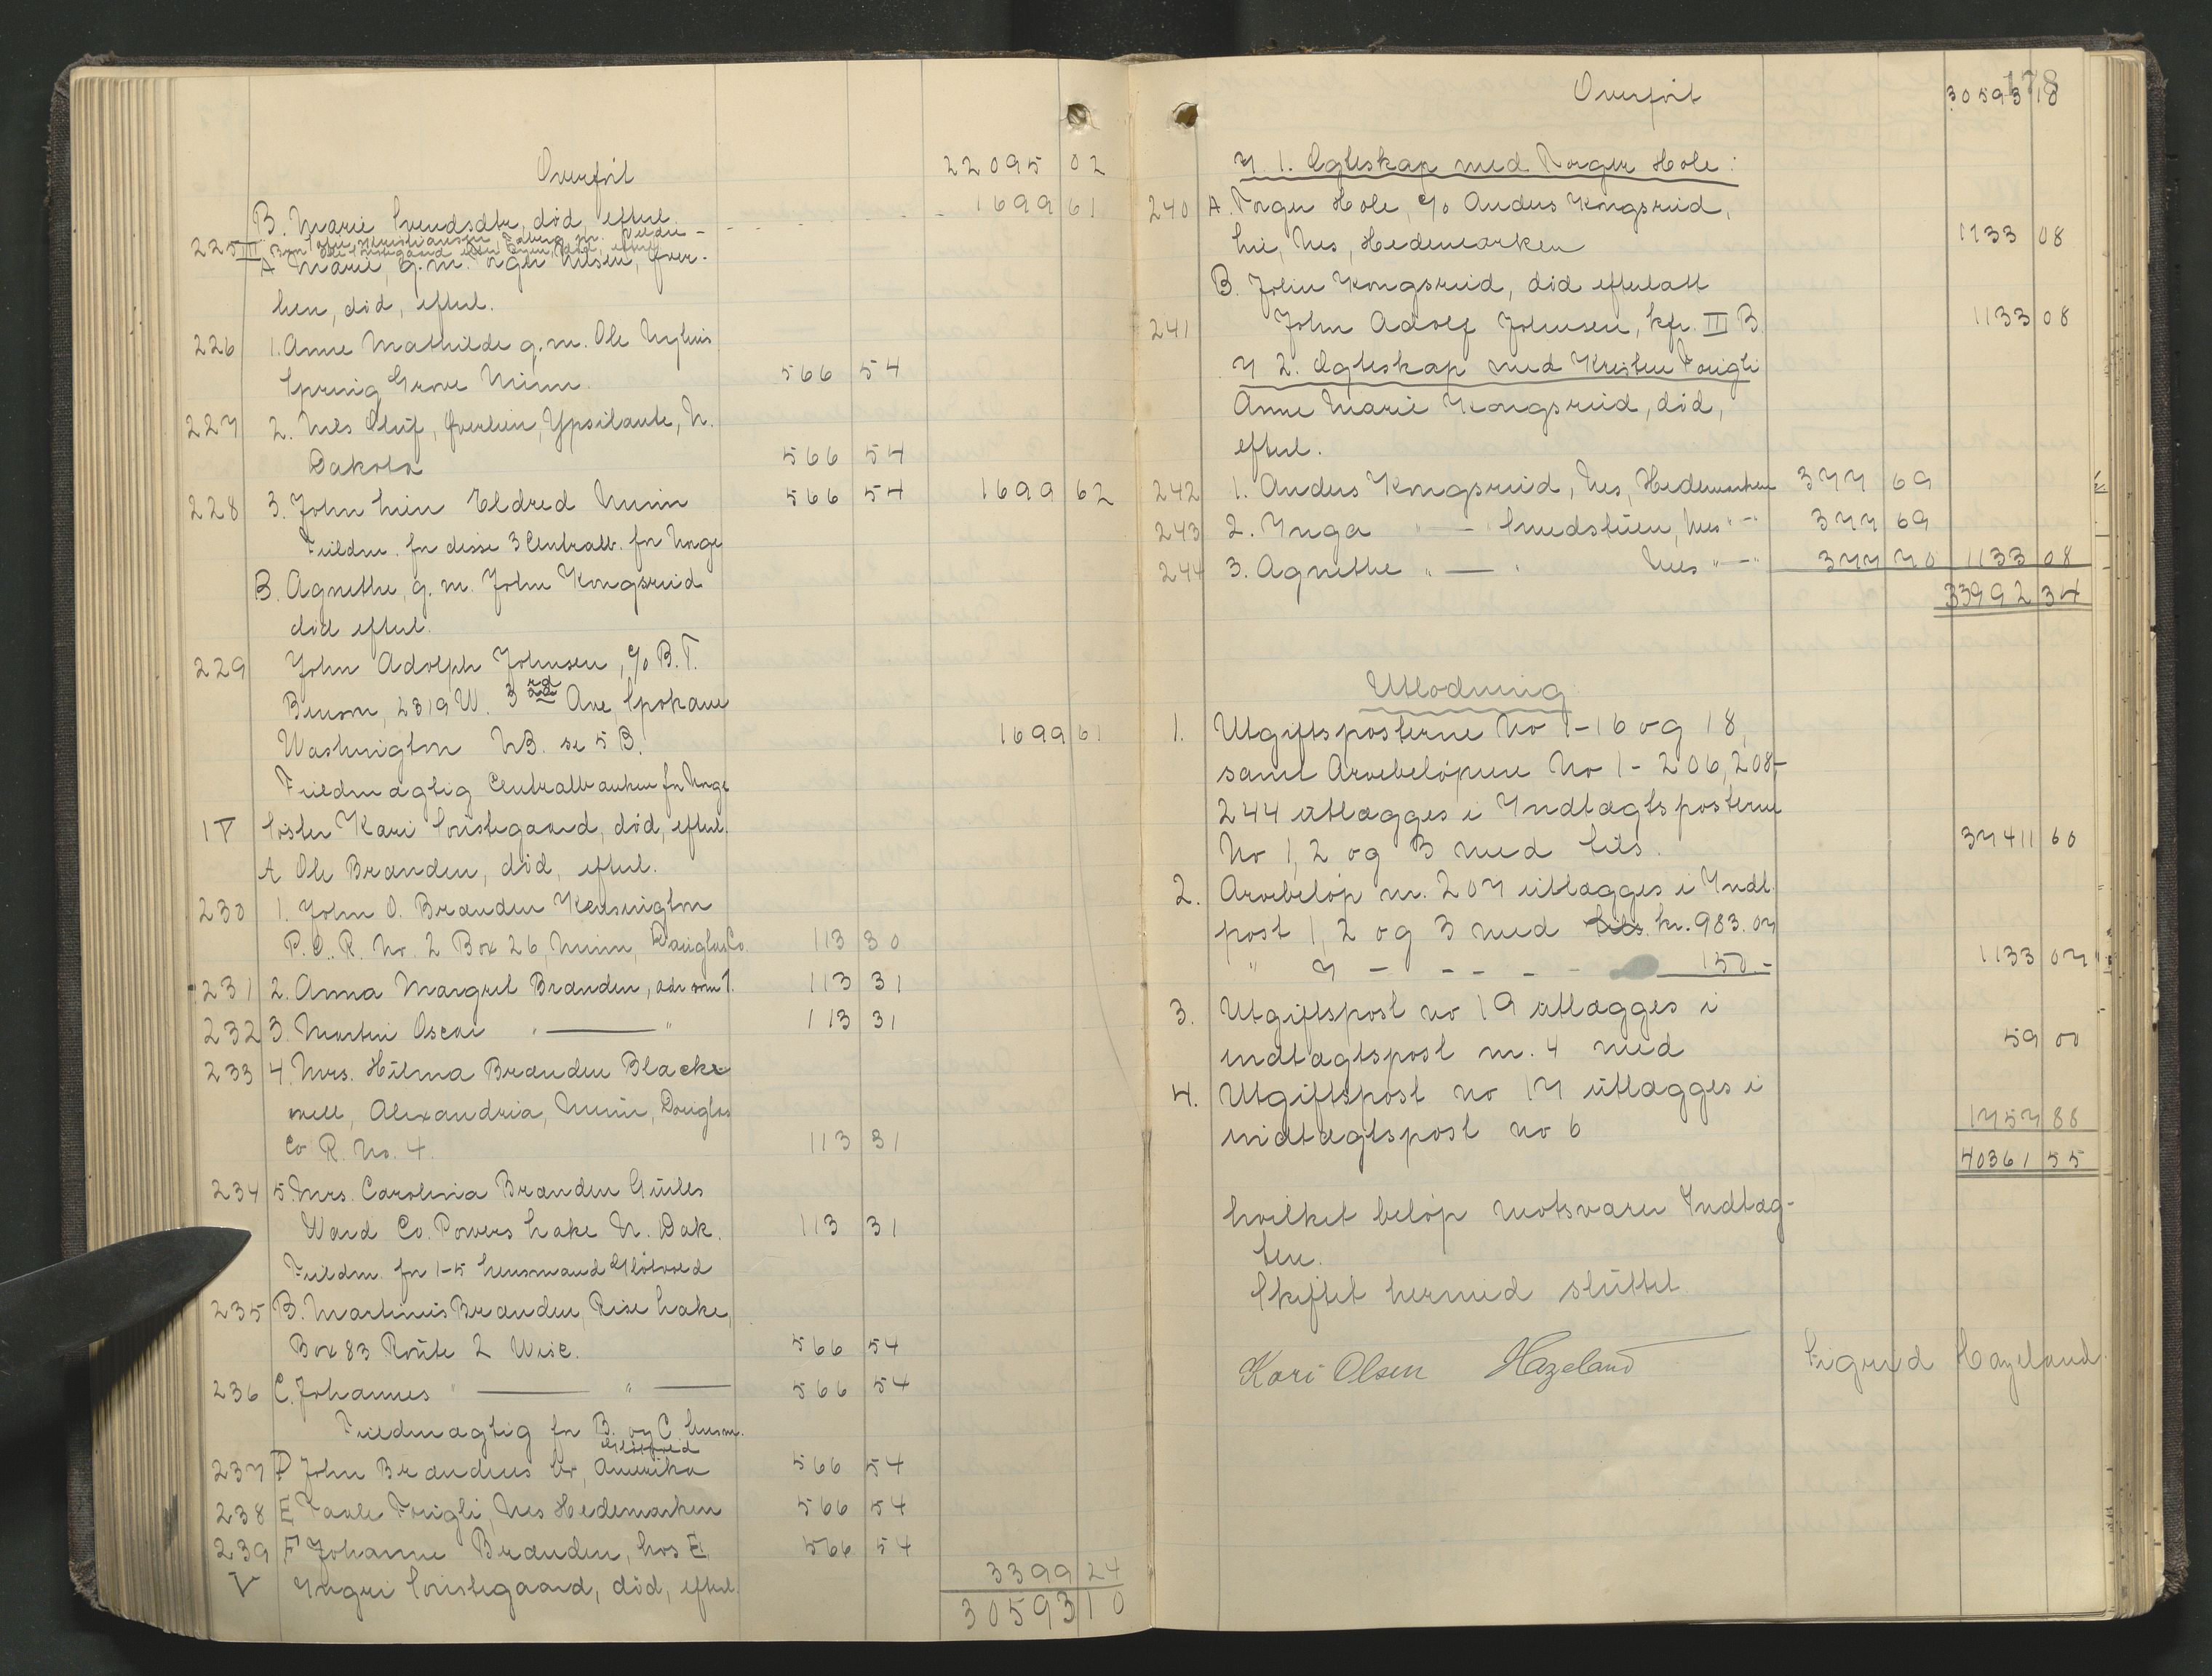 Overført 22095 02
B. Marie Svendsdtr, død, efterl. 1699 61
225 John Kristiansen, Fuldm.
III Bror Ole død, efterl.
A Marie, g.m. Torger Nilsen, Over-
lien, død, efterl.
226 1. Anne Mathilde g.m. Ole Myhus
Spring Grove Minn. 566 54
227 2. Nils Oluf, Øverlien, Ypsilante, N.
Dakota 566 54
228 3. John Lien Eldred Minn 566 54 1699 62
Fuldm. for disse 3 Centralb. for Norge
B. Agnethe, g.m. John Kongsrud
død efterl.
229 John Adolph Johnsen, c/o B.T.
Benson, 2319 W. 3rd Ave, Spokane
Washington NB. se 5 B. 1699 61
Fuldmægtig Centralbanken for Norge
IV Søster Kari Søristegaard, død, efterl.
A Ole Brænden, død, efterl.
230 1. John O. Brænden Kensington
P.O. R. No. 2 Box 26, Minn, Douglas Co. 113 30
231 2. Anna Margret Brænden, adr som 1. 113 31
232 3. Martin Oscar " — " 113 31
233 4. Mrs. Hilma Brænden Black-
well, Alexandria, Minn, Douglas
Co R. No. 4. 113 31
234 5. Mrs. Carolina Brænden Guiles
Ward Co. Powers Lake N. Dak. 113 31
Fuldm. for 1-5 lensmand Gløtvold
235 B. Martinus Brænden, Rise Lake,
Box 83 Route 2 Wisc. 566 54
236 C. Johannes " — " — 566 54
Fuldmægtig for B. og C. lensm.
Gløtvold
237 D John Brændens br, Amerika 566 54
238 E Paale Frigli, Nes Hedemarken 566 54
239 F Johanne Brænden, hos E. 566 54
V Ingri Søristegaard, død, efterl. 3399 24
30593 10
178
Overført 30593 10
I 1. Egteskap med Torger Hole:
240 A. Torger Hole, c/o Anders Kongsrud,
Lie, Nes, Hedemarken 1133 08
B. Johan Kongsrud, død efterlatt
241 John Adolf Johnsen, kfr. III B. 1133 08
I 2. Egteskap med Kristen Frigli
Anne Marie Kongsrud, død,
efterl.
242 1. Anders Kongsrud, Nes, Hedemarken 377 69
243 2. Inga " — " Smedstuen, Nes " — " 377 69
244 3. Agnethe " — " Nes " — " 377 70 1133 08
33992 34
Utlodning
1. Utgiftsposterne No 1-16 og 18,
samt Arvebeløpene No 1-206, 208-
244 utlægges i Indtægtsposterne
No 1, 2 og 3 med tils. 37411 60
2. Arvebeløp nr. 207 utlægges i Indt.
post 1, 2 og 3 med tils. kr. 983.07
" 7 - - - - - 150 - 1133 07
3. Utgiftspost no 19 utlægges i
indtægtspost nr. 4 med 59 00
4. Utgiftspost no 17 utlægges i
indtægtspost no 6 1757 88
40361 55
hvilket beløp motsvarer Indtæg-
ten.
Skiftet hermed sluttet.
Kari Olsen Hazeland Sigrid Hazeland.